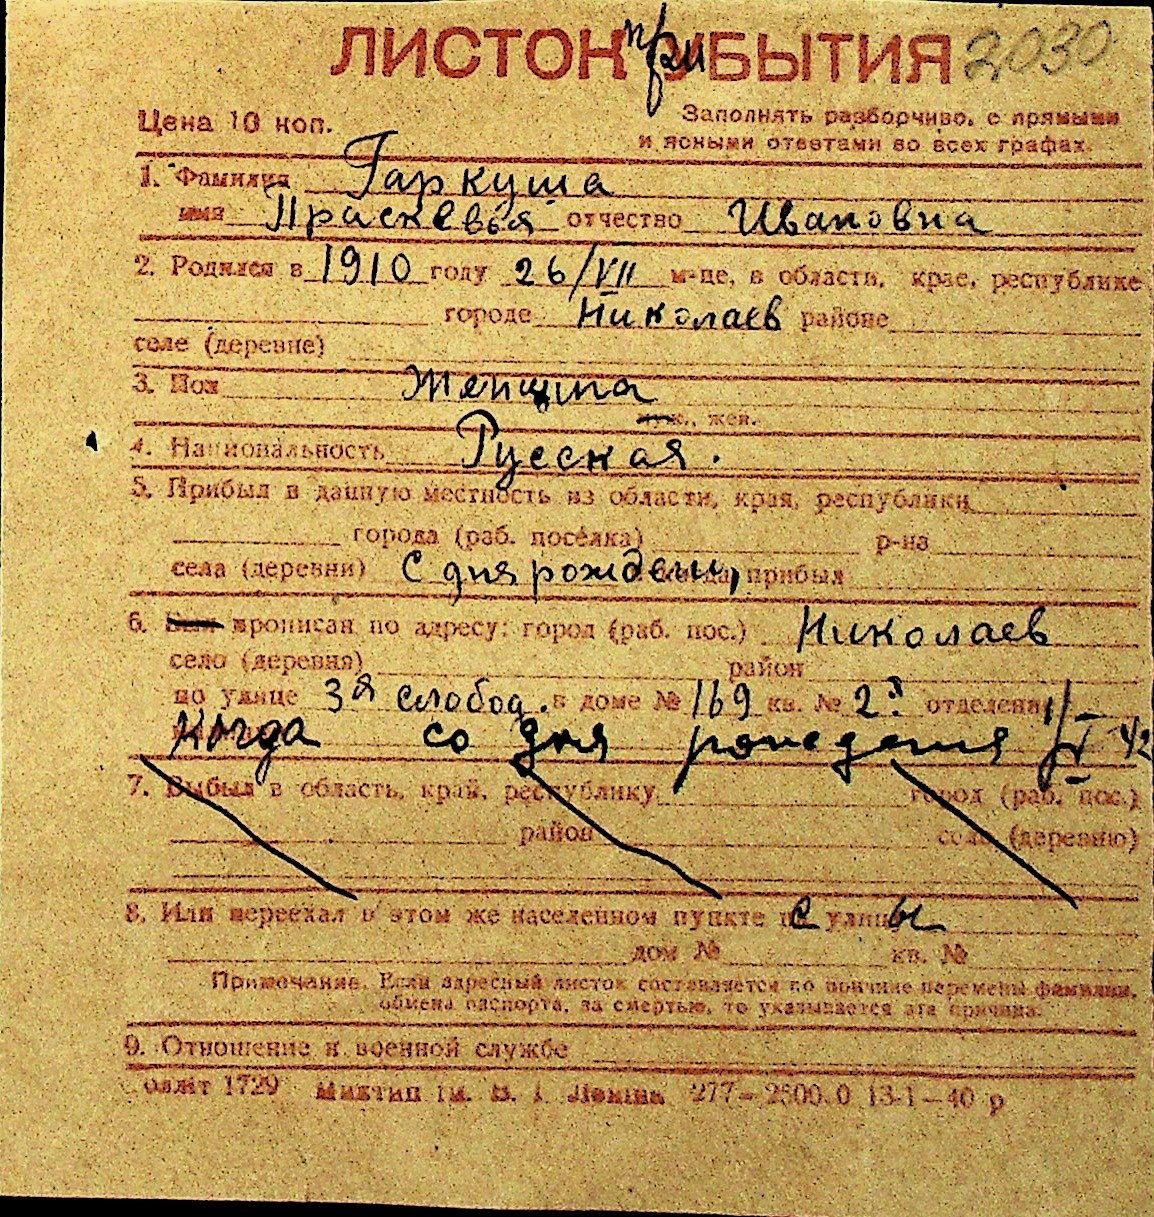 ЛИСТОК приБЫТИЯ 2030
Цена 10 коп.
Заполнять разборчиво, с прямыми
и ясными ответами во всех графах.
1. Фамилия Гаркуша
имя Прасковья отчество Ивановна
2. Родился в 1910 году 26/VII м-це, в области, крае, республике
городе Николаев районе
селе (деревне)
3. Пол Женщина
муж., жен.
4. Национальность Русская.
5. Прибыл в данную местность из области, края, республики
города (раб. посёлка) р-на
села (деревни) С дня рождени, прибыл
6. Был прописан по адресу: город (раб. пос.) Николаев
село (деревня) район
по улице 3я слобод. в доме № 169 кв. № 2 отделения
Когда со дня рождения 1/V 42
7. Выбыл в область, край, республику город (раб. пос.)
район село (деревню)
8. Или переехал в этом же населенном пункте с улицы
дом № кв. №
Примечание. Если адресный листок составляется по причине перемены фамилии,
обмена паспорта, за смертью, то указывается эта причина.
9. Отношение к военной службе
оллiт 1729 Миктип iм. В. I. Ленiна 277—2500.0 13-1—40 р